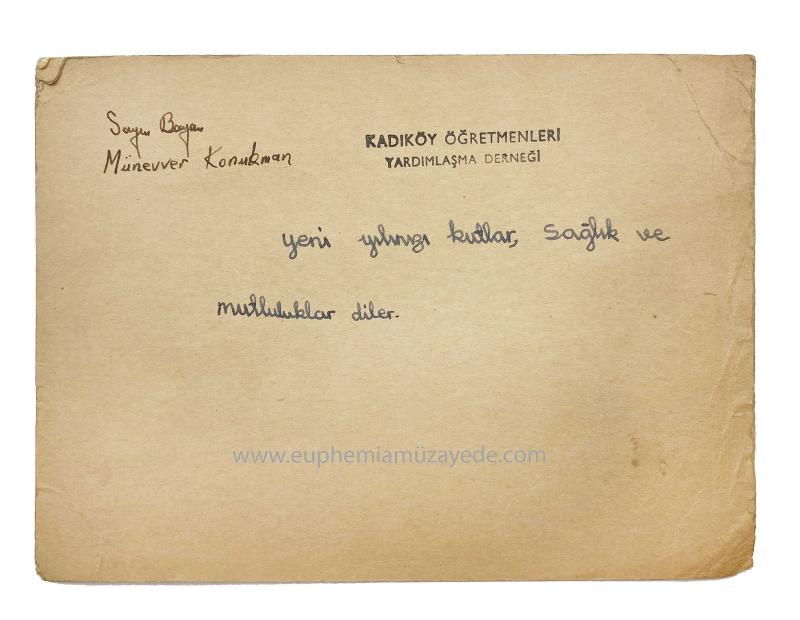 Sayın Bayan
Münevver Konukman
KADIKÖY ÖĞRETMENLERİ
YARDIMLAŞMA DERNEĞİ
yeni yılınızı kutlar, sağlık ve
mutluluklar diler.
www.euphemiamüzayede.com